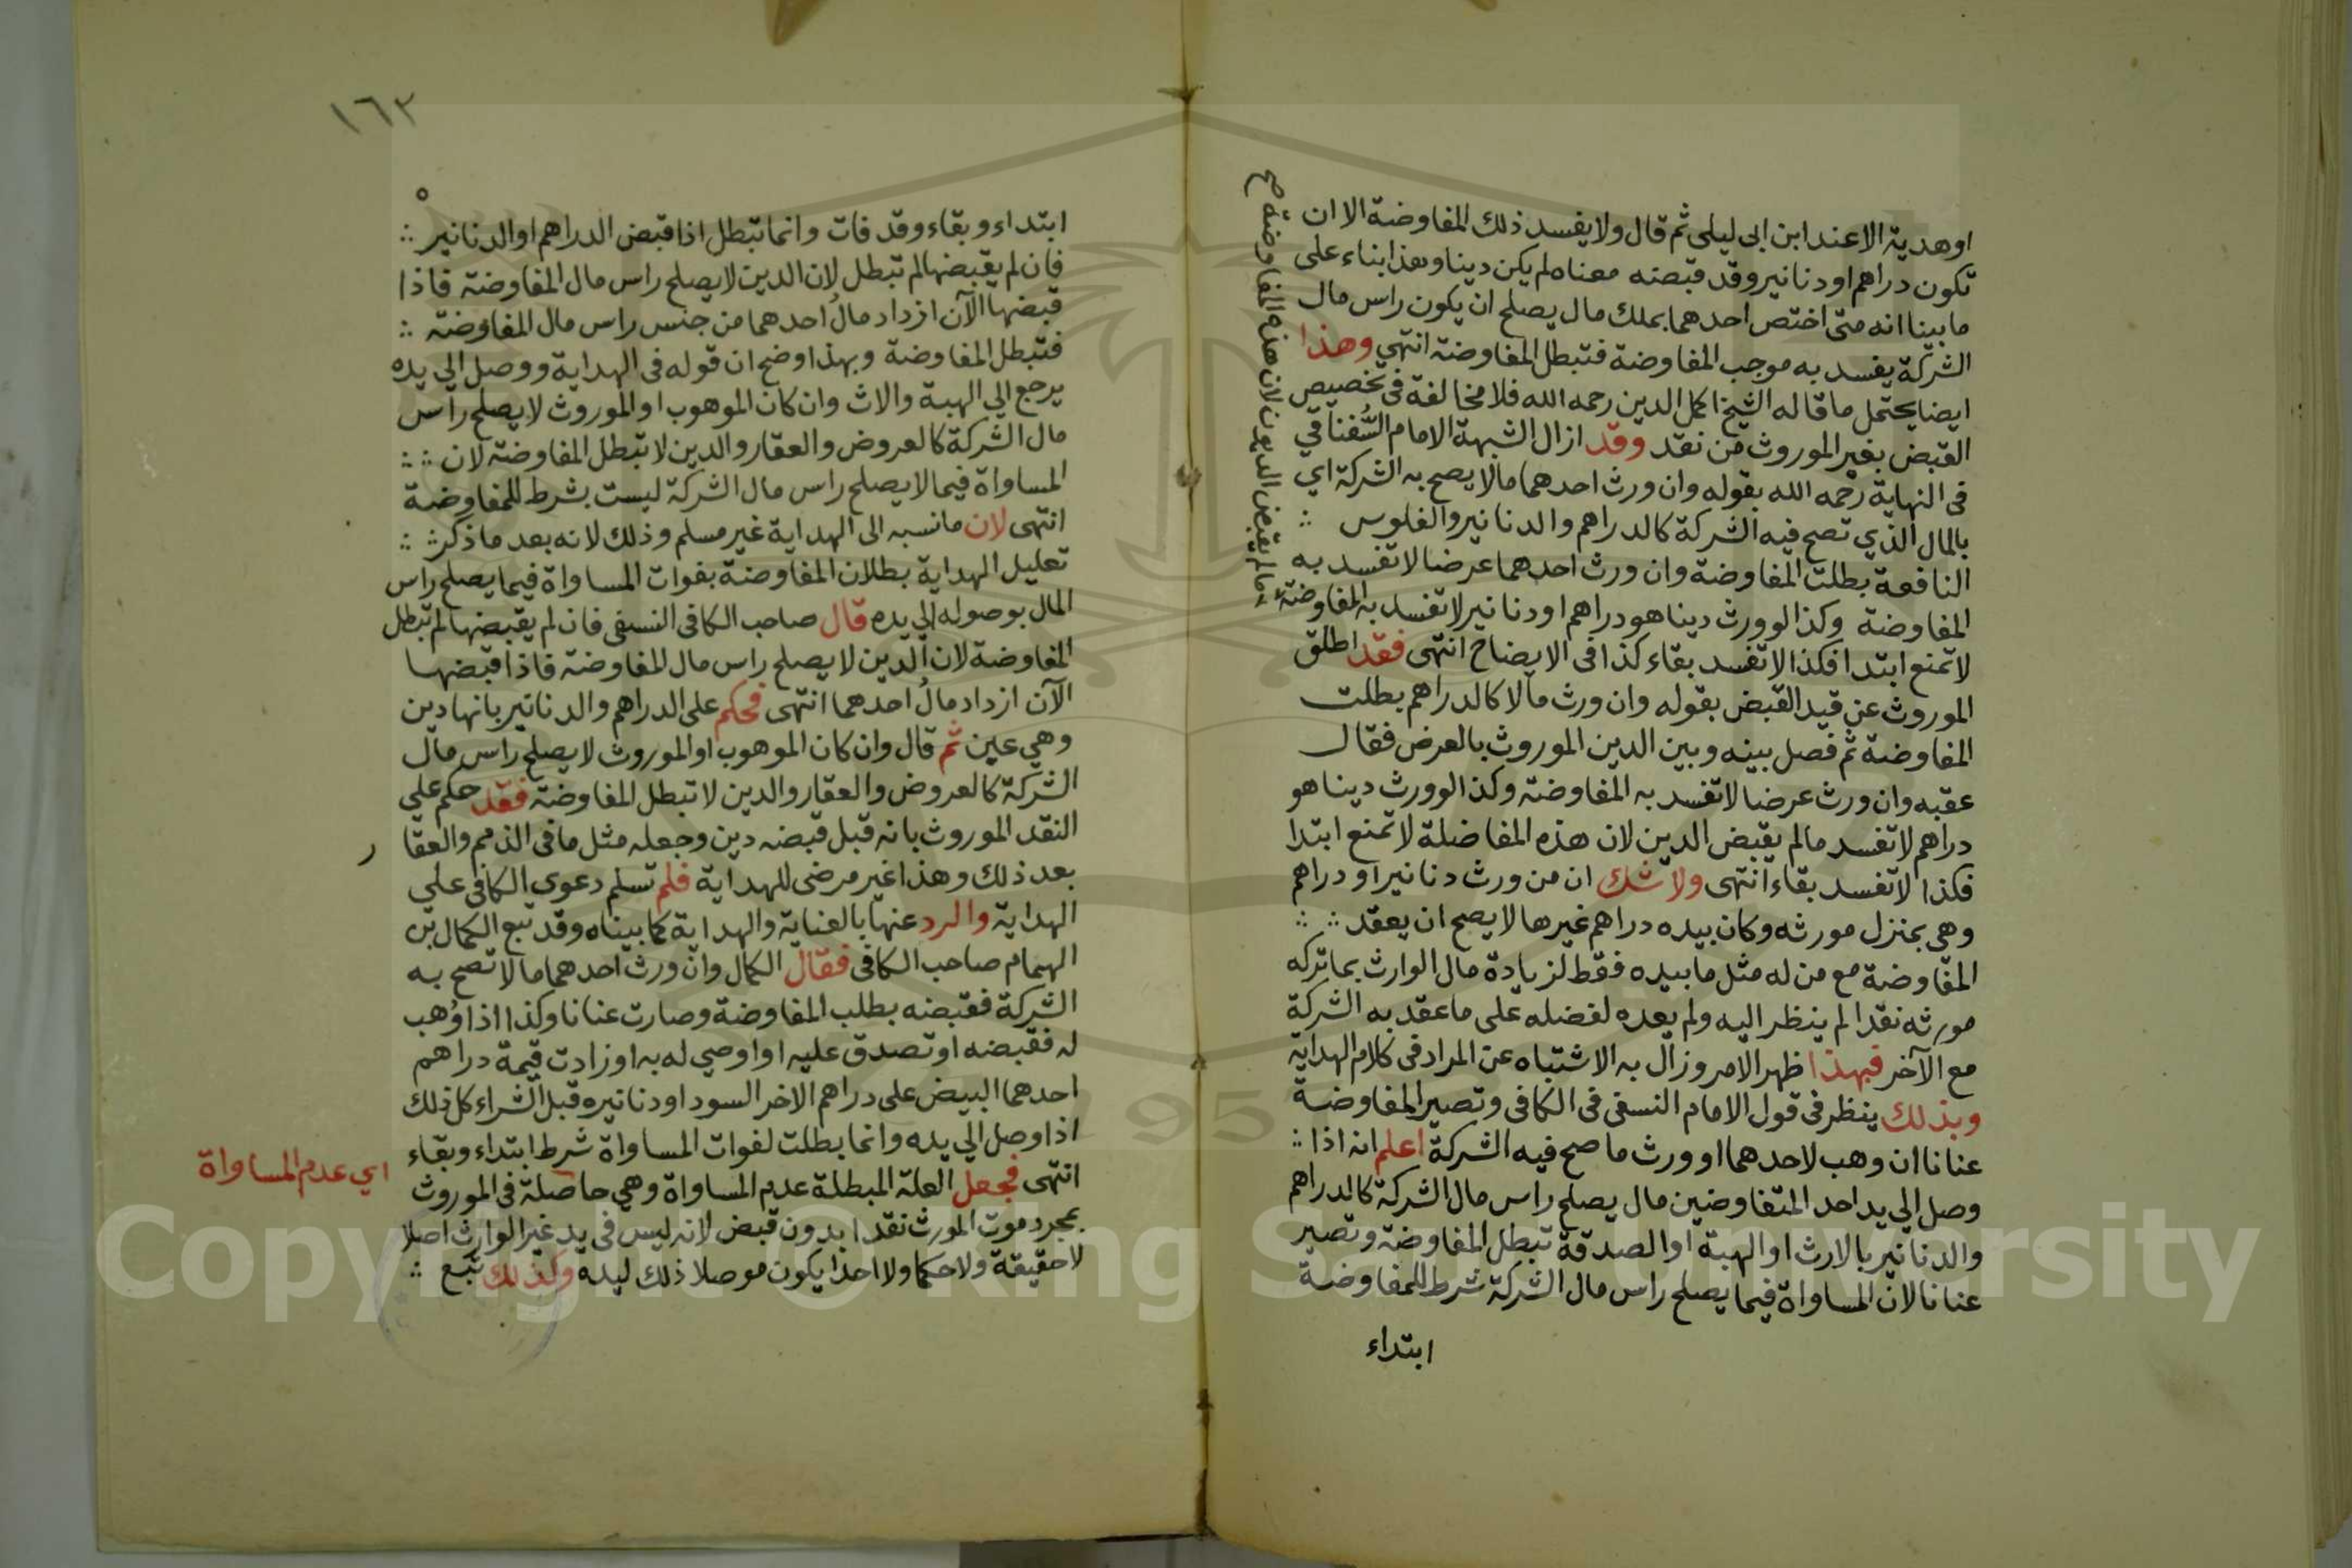 او هدية الا عند ابن ابى ليلى ثم قال ولا يفسد ذلك المفاوضة الا ان
تكون دراهم او دنانير وقد قبضته معناه لم يكن دينا وهذا بناء على
ما بينا انه متى اختص احدهما بملك مال يصلح ان يكون راس مال
الشركة يفسد به موجب المفاوضة فتبطل المفاوضة انتهي وهذا
ايضا يحتمل ما قاله الشيخ اكمل الدين رحمه الله فلا مخالفة فى تخصيص
القبض بغير الموروث من نقد وقد ازال الشبهة الامام السُّغناقي
فى النهاية رحمه الله بقوله وان ورث احدهما مالا يصح به الشركة اي
بالمال الذي تصح فيه الشركة كالدراهم والدنانير والفلوس ∴
النافعة بطلت المفاوضة وان ورث احدهما عرضا لا تفسد به
المفاوضة وكذا لو ورث دينا هو دراهم او دنانير لا تفسد به المفاوضة
ما لم يقبض الديون لان هذه المفاوضة صح
لا تمنع ابتدا فكذا لا تفسد بقاء كذا فى الايضاح انتهى فقد اطلق
الموروث عن قيد القبض بقوله وان ورث مالا كالدراهم بطلت
المفاوضة ثم فصل بينه وبين الدين الموروث بالعرض فقال
عقبه وان ورث عرضا لا تفسد به المفاوضة وكذا لو ورث دينا هو
دراهم لا تفسد مالم يقبض الدين لان هذه المفاضلة لا تمنع ابتدا
فكذا لا تفسد بقاء انتهى ولا شك ان من ورث دنانير او دراهم
وهي بمنزل مورثه وكان بيده دراهم غيرها لا يصح ان يعقد ∴ ∴
المفاوضة مع من له مثل ما بيده فقط لزيادة مال الوارث بما تركه
مورثه نقدا لم ينظر اليه ولم يعده لفضله على ما عقد به الشركة
مع الآخر فبهذا ظهر الامر وزال به الاشتباه عن المراد فى كلام الهداية
وبذلك ينظر فى قول الامام النسفى فى الكافى وتصير المفاوضة
عنانا ان وهب لاحدهما او ورث ما صح فيه الشركة اعلم انه اذا ∴
وصل الي يد احد المتفاوضين مال يصلح راس مال الشركة كالدراهم
والدنانير بالارث او الهبة او الصدقة تبطل المفاوضة وتصير
عنانا لان المساواة فيما يصلح راس مال الشركة شرط للمفاوضة
ابتداء
١٦٣
ابتداء وبقاء وقد فات وانما تبطل اذا قبض الدراهم او الدنانير ∴
فان لم يقبضها لم تبطل لان الدين لا يصلح راس مال المفاوضة فاذا
قبضها الآن ازداد مالُ احدهما من جنس راس مال المفاوضة ∴
فتبطل المفاوضة وبهذا وضح ان قوله فى الهداية ووصل الي يده
يرجع الي الهبة والاث وان كان الموهوب او الموروث لا يصلح راس
مال الشركة كالعروض والعقار والدين لا تبطل المفاوضة لان ∴ ∴
المساواة فيما لا يصلح راس مال الشركة ليست بشرط للمفاوضة
انتهى لان ما نسبه الى الهداية غير مسلم وذلك لانه بعد ما ذكر ∴
تعليل الهداية بطلان المفاوضة بفوات المساواة فيما يصلح راس
المال بوصوله الي يده قال صاحب الكافى النسفى فان لم يقبضها لم تبطل
المفاوضة لان الدين لا يصلح راس مال للمفاوضة فاذا قبضها
الآن ازداد مالُ احدهما انتهى فحكم على الدراهم والدنانير بانها دين
وهي عين ثم قال وان كان الموهوب او الموروث لا يصلح راس مال
الشركة كالعروض والعقار والدين لا تبطل المفاوضة فقد حكم علي
النقد الموروث بانه قبل قبضه دين وجعله مثل ما فى الذمم والعقار
بعد ذلك وهذا غير مرضى للهداية فلم تسلم دعوي الكافى علي
الهداية والرد عنها بالعناية والهداية كما بيناه وقد تبع الكمال بن
الهمام صاحب الكافى فقال الكمال وان ورث احدهما ما لا تصح به
الشركة فقبضه بطلب المفاوضة وصارت عنانا وكذا اذا وُهب
له فقبضه او تصدق عليه او اوصي له به او زادت قيمة دراهم
احدهما البيض على دراهم الاخر السود او دنانيره قبل الشراء كل ذلك
اذا وصل الي يده وانما بطلت لفوات المساواة شرط ابتداء وبقاء
انتهى فجعل العلة المبطلة عدم المساواة وهي حاصلة فى الموروث
اي عدم المساواة
بمجرد موت المورث نقدا بدون قبض لانه ليس فى يد غير الوارث اصلا
لا حقيقة ولا حكما ولا احدا يكون موصلا ذلك ليده وكذلك تبع ∴
Copyright © King Saud University